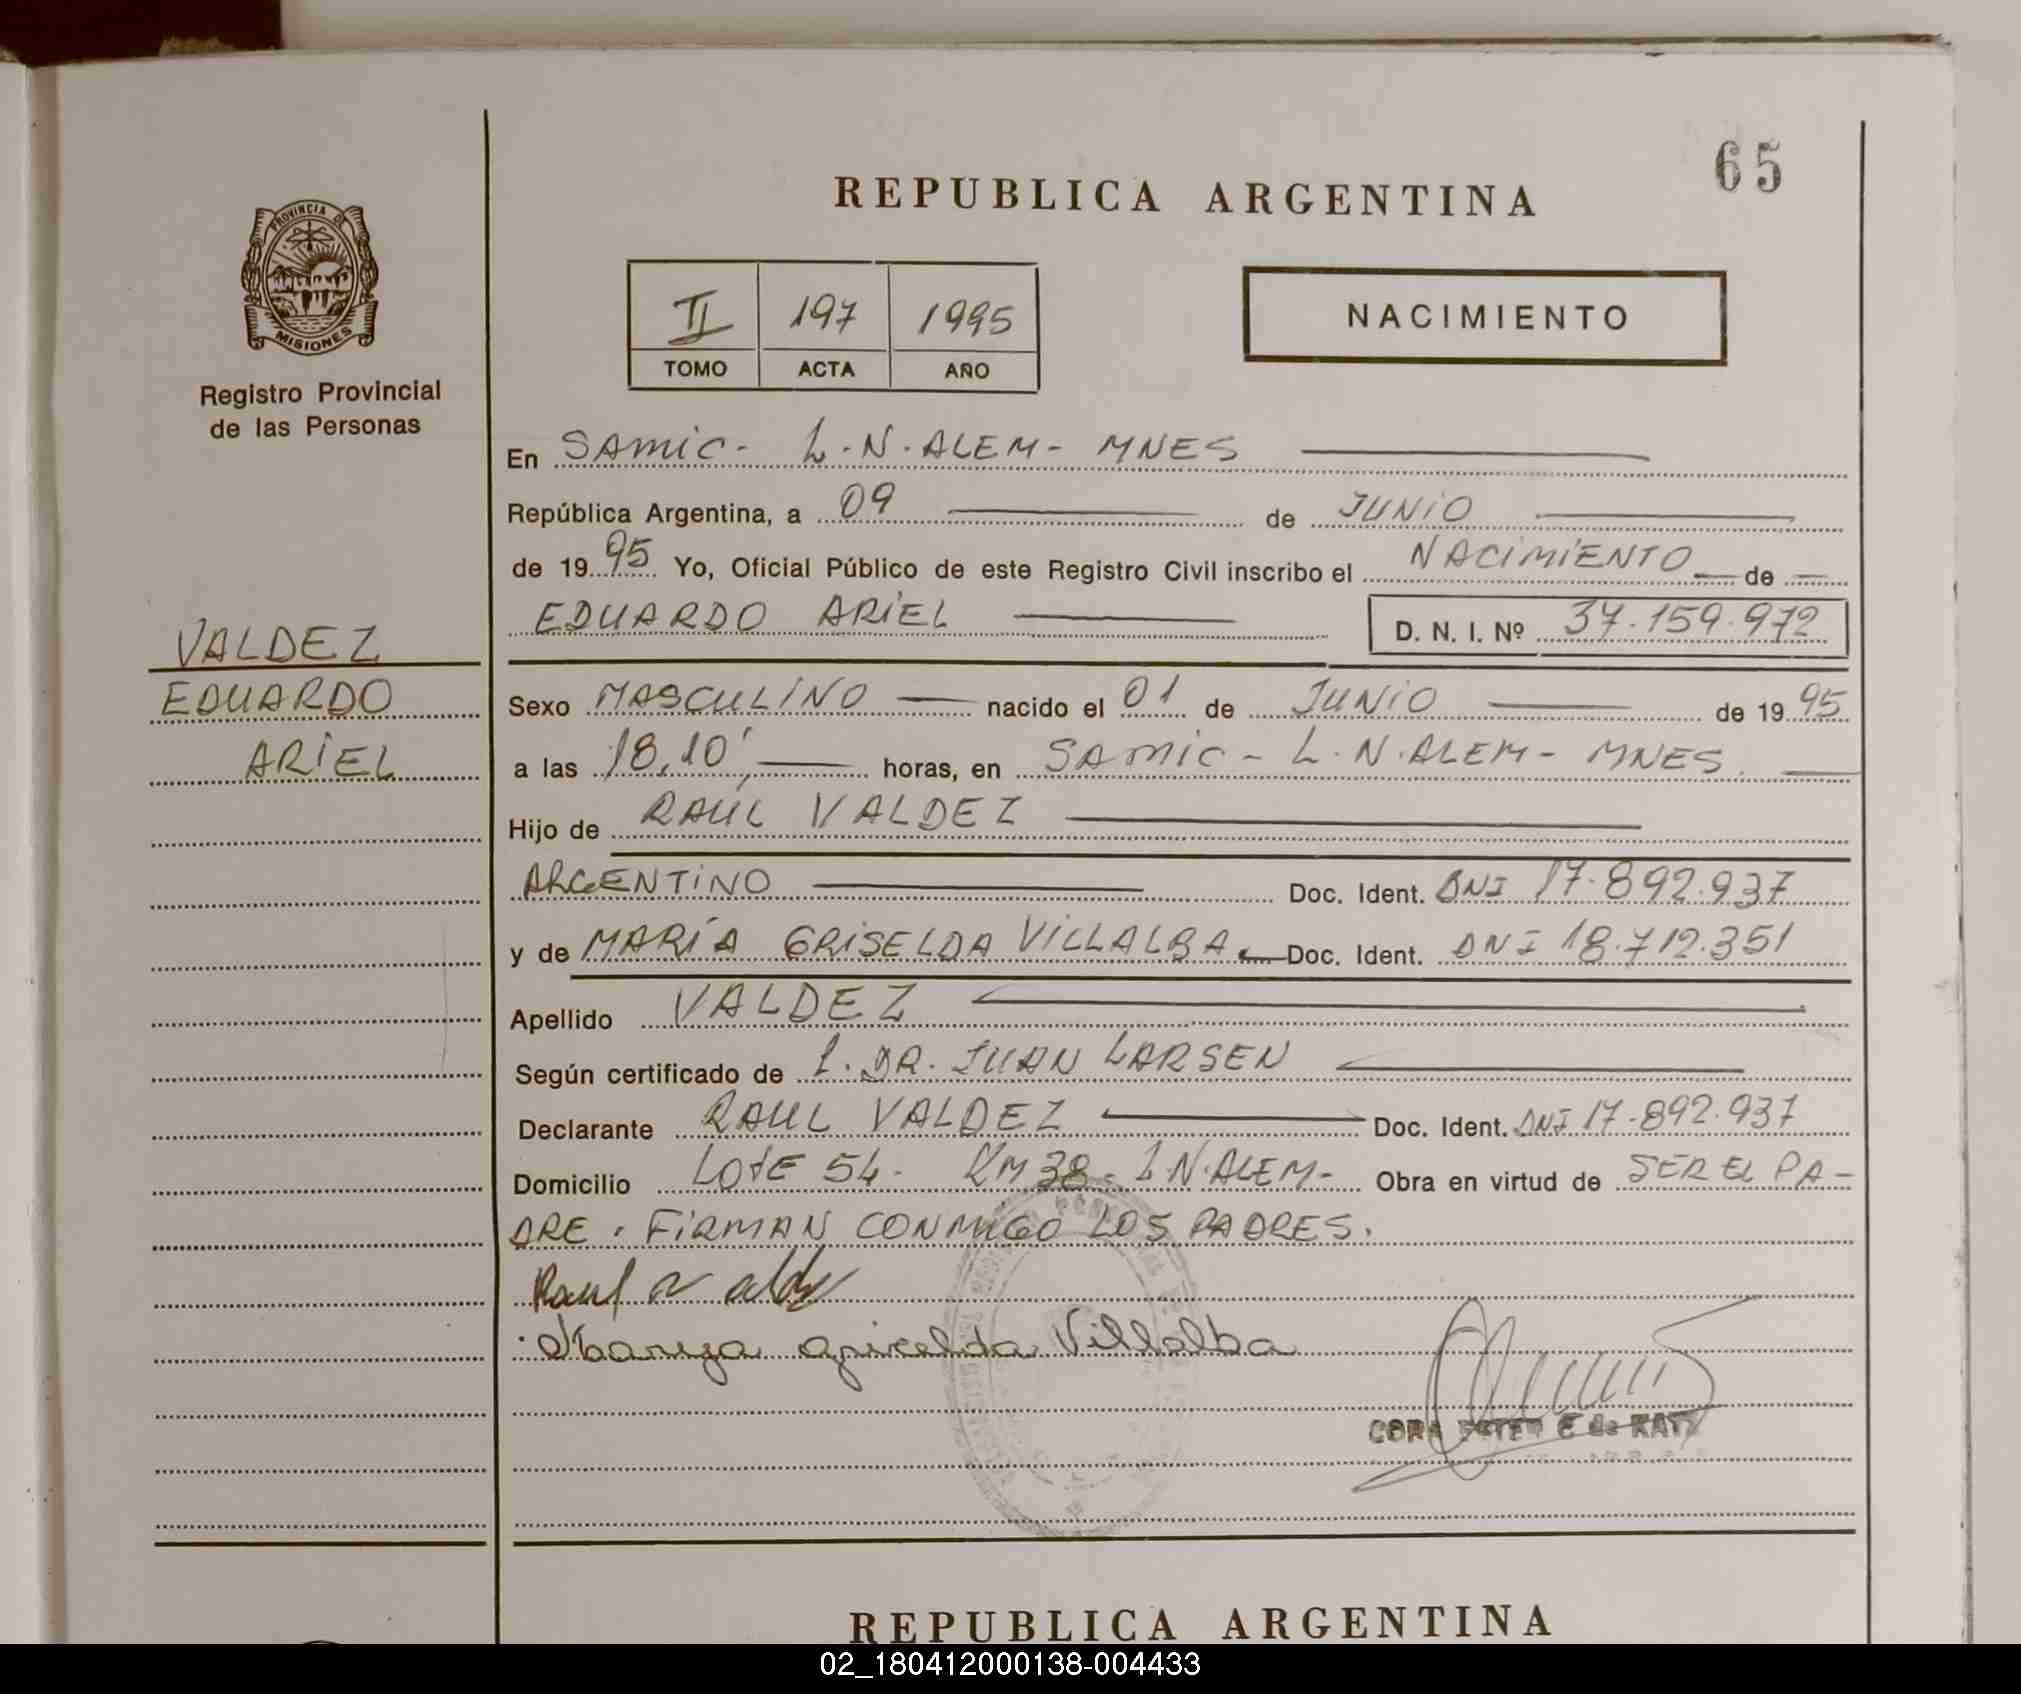 65
REPUBLICA ARGENTINA
PROVINCIA DE
MISIONES
Registro Provincial
de las Personas
II 197 1995
TOMO ACTA AÑO
NACIMIENTO
En SAMIC - L.N. ALEM - MNES
República Argentina, a 09 de JUNIO
de 1995 Yo, Oficial Público de este Registro Civil inscribo el NACIMIENTO de
EDUARDO ARIEL D. N. I. Nº 37.159.972
VALDEZ
EDUARDO
ARIEL
Sexo MASCULINO nacido el 01 de JUNIO de 1995
a las 18,10' horas, en SAMIC - L.N. ALEM - MNES.
Hijo de RAUL VALDEZ
ARGENTINO Doc. Ident. DNI 17.892.937
y de MARÍA GRISELDA VILLALBA Doc. Ident. DNI 18.712.351
Apellido VALDEZ
Según certificado de L. DR. JUAN LARSEN
Declarante RAUL VALDEZ Doc. Ident. DNI 17.892.937
Domicilio LOTE 54 - KM 38 - L N. ALEM - Obra en virtud de SER EL PA-
DRE. FIRMAN CONMIGO LOS PADRES.
Raul
Villalba
CORA E de KATZ
REPUBLICA ARGENTINA
02_180412000138-004433